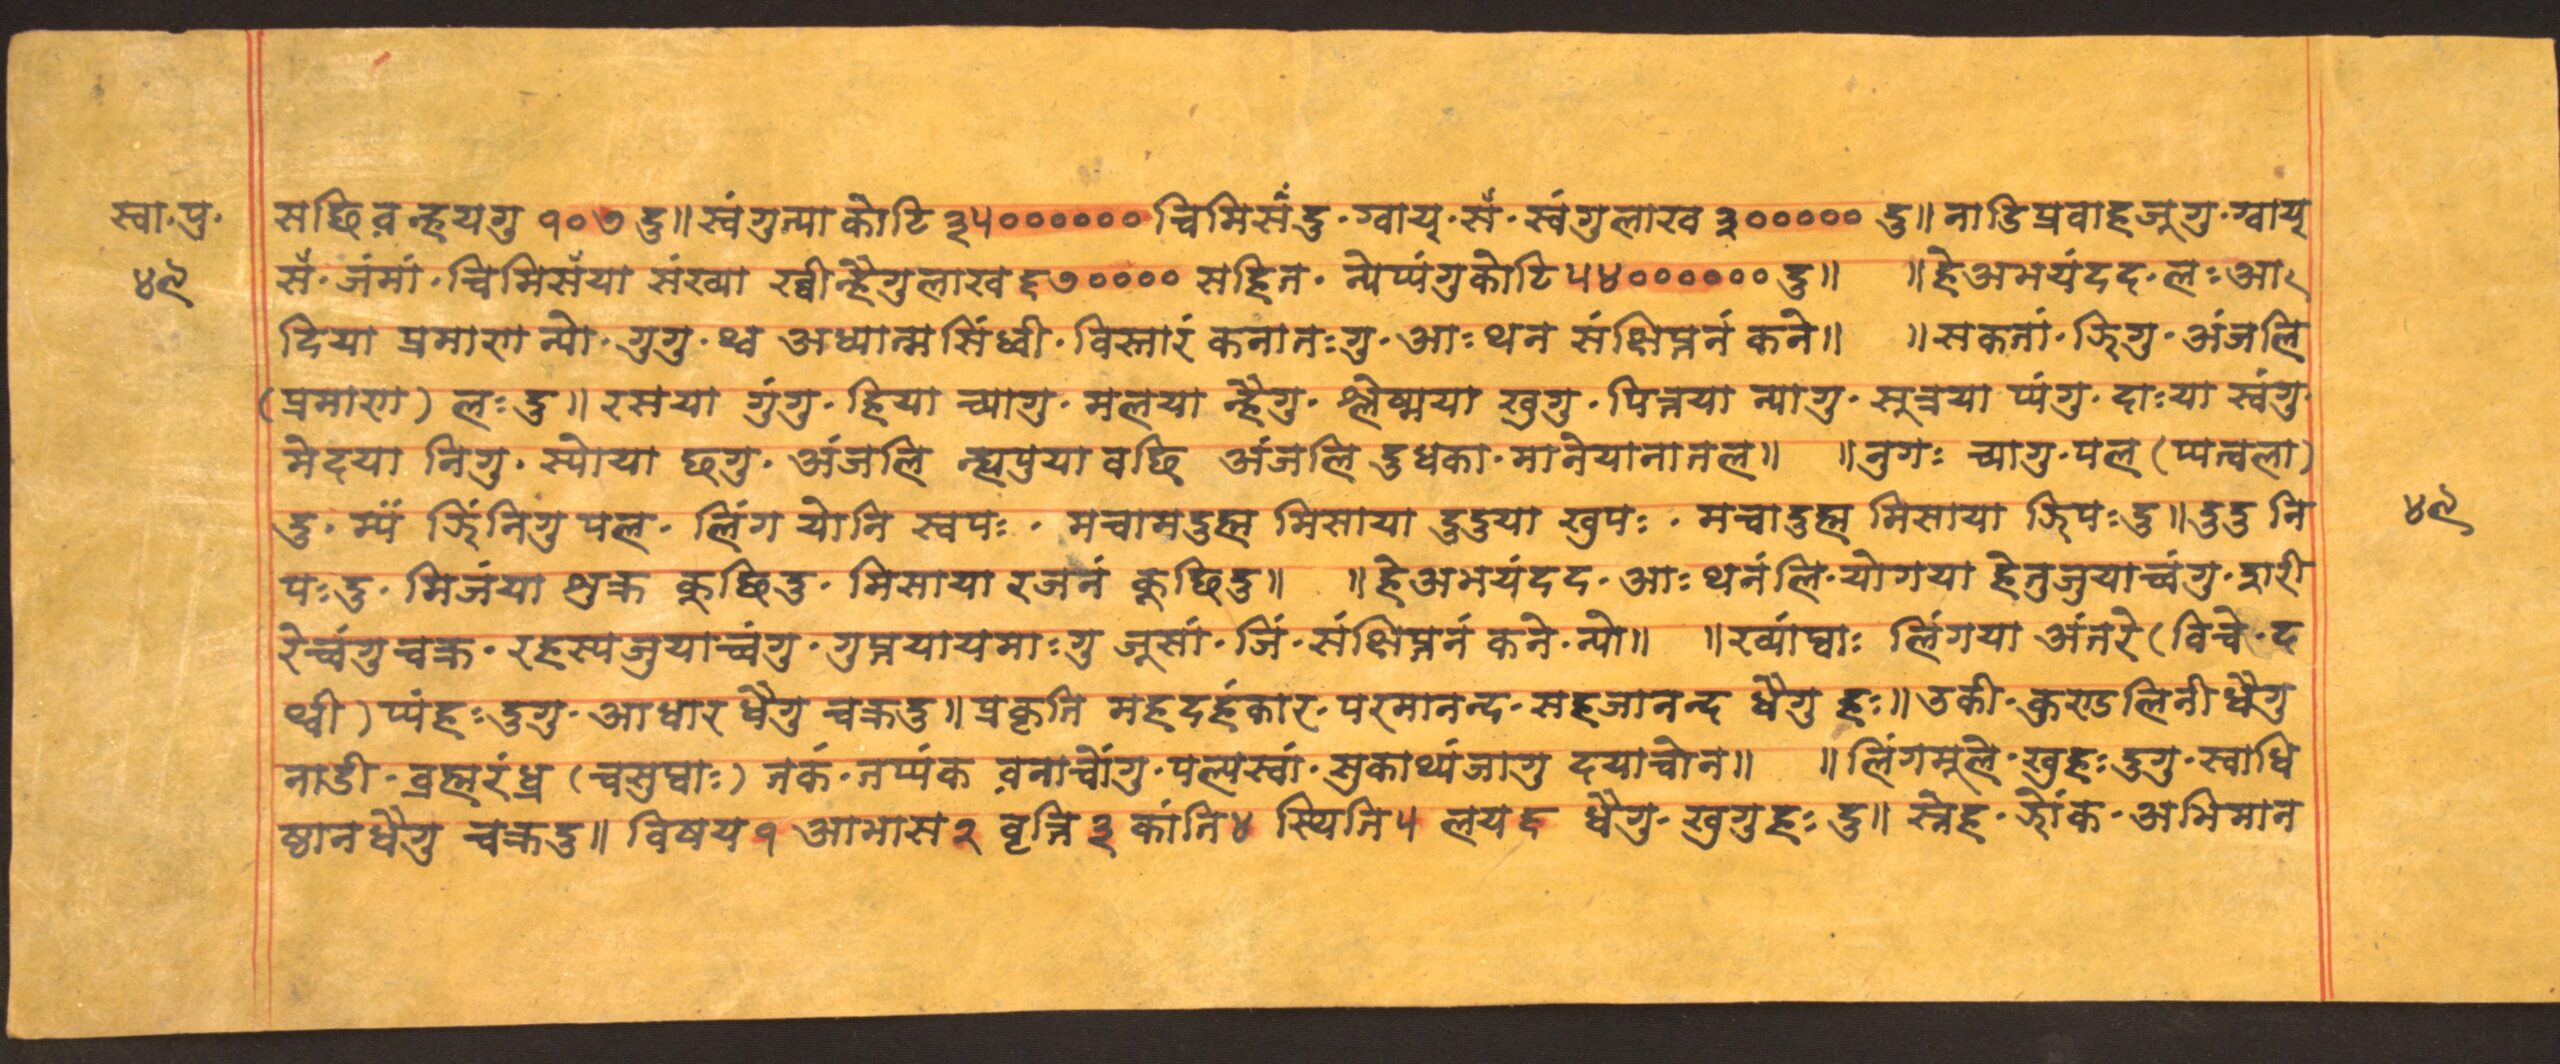 स्वा·प्र·
४९
सछि व़न्ह्रयगु १०७ दु॥ स्वंगुत्या कोटि ३५०००००० चिमिसँदु·ग्वाय्·सँ·स्वंगुलाख ३००००० दु॥ नाडिप्रवाहजूगु·ग्वाय्
सँ·जंमां·चिमिसँया संख्या ख्वीन्हैगुलाख ६७०००० सहित·न्येप्यंगुकोटि ५४०००००० दु॥ ॥हेअभयंदद·लःआ
दिया प्रमाण न्यो·गुगु·थ्व अध्यात्मसिंध्वी·विस्तारं कनातःगु·आःथन संक्षिप्तनं कने॥ ॥सकतां·झिगु·अंजलि
(प्रमाण) लःदु॥ रसया गुंगु·हिया च्यागु·मलया न्हैगु·श्लेष्मया खुगु·पित्तया न्यागु·सूत्रया प्यंगु·दाःया स्वंगु·
मेदया निगु·स्योया छगु·अंजलि न्ह्यपुया वछि अंजलि दुधका·मानेयानातल॥ ॥नुगः च्यागु·पल (प्यत्वला)
दु·म्यँ झिंनिगु पल·लिंग योनि स्वपः·मचामदुह्म मिसाया दुदुया खुपः·मचादुह्म मिसाया झिपःदु॥ दुदु नि
पःदु·मिजंया शुक्र कूछिदु·मिसाया रजनं कूछिदु॥ ॥हेअभयंदद·आःथनंलि·योगया हेतुजुयाच्वंगु·शरी
रेच्वंगुचक्र·रहस्यजुयाच्वंगु·गुप्तयायमाःगु जूसां·जिं·संक्षिप्तनं कने·न्यो॥ ॥ख्यांप्वाः लिंगया अंतरे (विचे·द
थ्वी) प्यंहःदुगु·आधार धैगु चक्रदु॥ प्रकृति महदहंकार·परमानन्द·सहजानन्द धैगु हः॥ उकी·कुण्डलिनी धैगु
नाडी·ब्रह्मरंध्र (चसुप्वाः) तकं·तप्यंक व़नाचोंगु·पल्यस्वां·सुकाथ्यंजागु दयाचोन॥ ॥लिंगमूले·खुहःदुगु·स्वाधि
ष्ठानधैगु चक्रदु॥ विषय१ आभास२ वृत्ति३ कांति४ स्थिति५ लय६ धैगु·खुगुहः दु॥ स्नेह·झोंक·अभिमान
४९